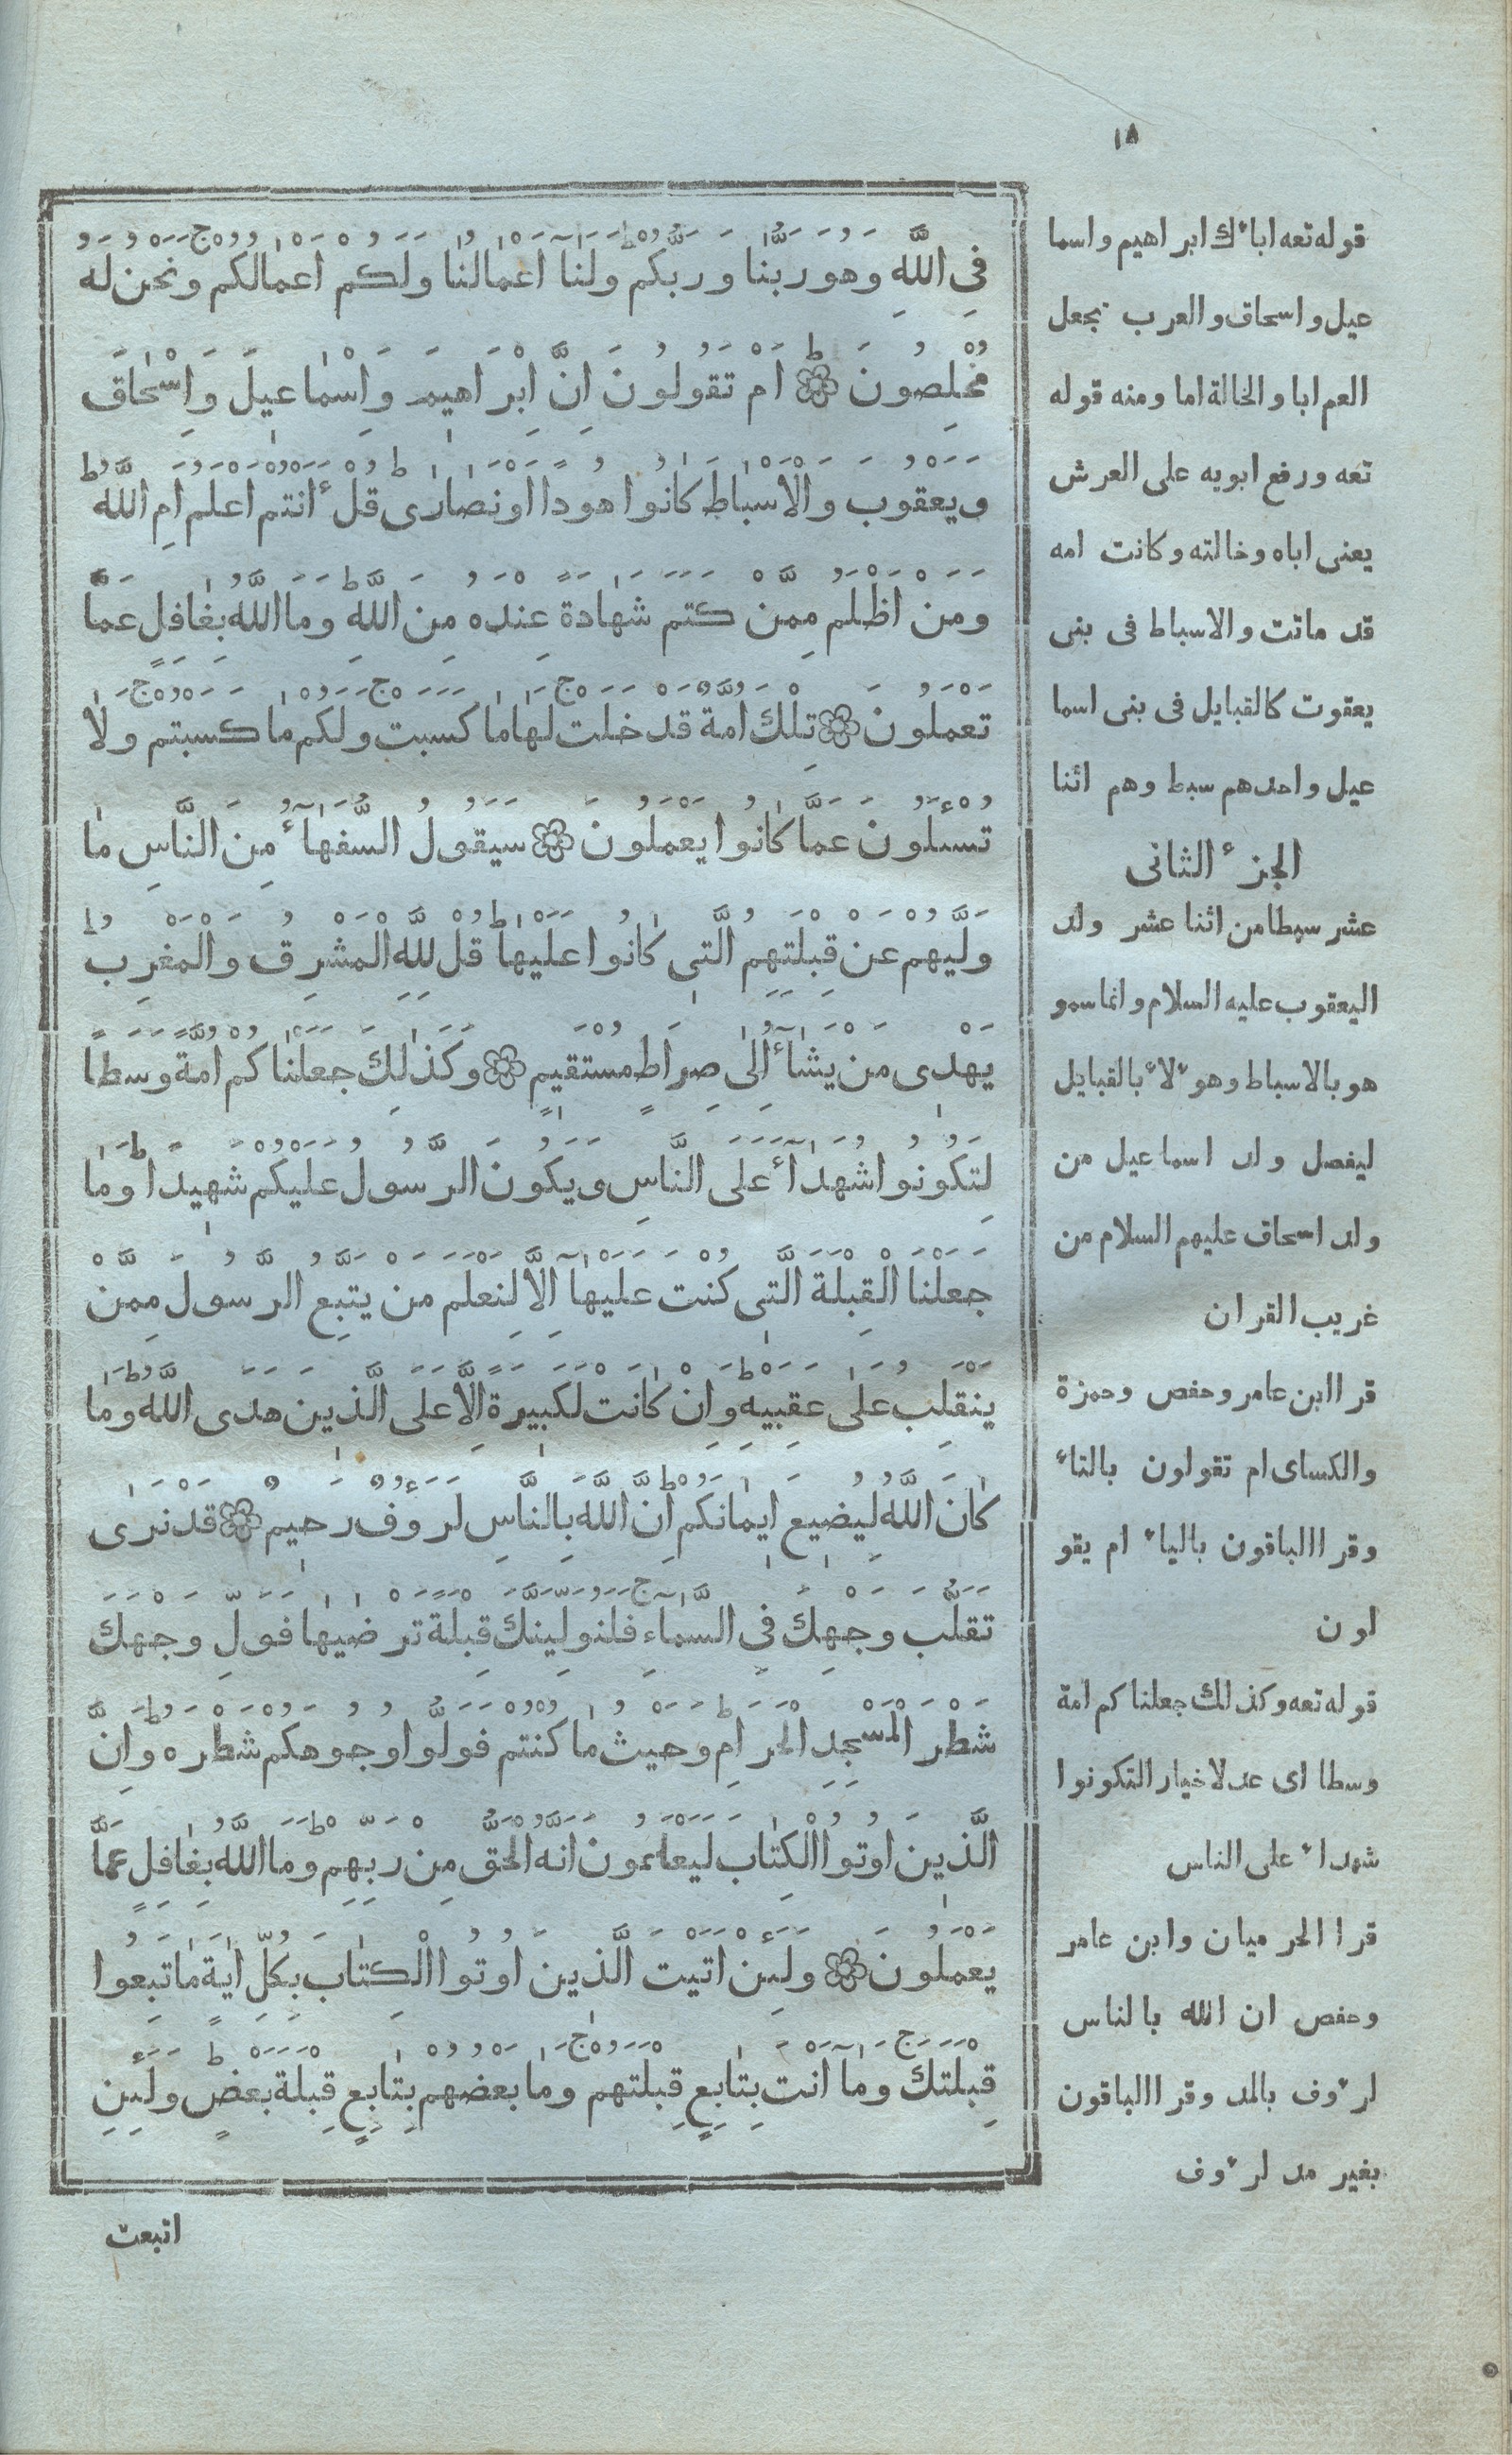 ١٨
فِى اللَّهِ وَهُوَ رَبُّنَا وَرَبُّكُمْ وَلَنَآ اَعْمَالُنَا وَلَكُمْ اَعْمَالُكُمْ ج وَنَحْنُ لَهُ
مُخْلِصُونَ ط اَمْ تَقُولُونَ اِنَّ اِبْرَاهِيمَ وَاِسْمَاعِيلَ وَاِسْحَاقَ
وَيَعْقُوبَ وَالْاَسْبَاطَ كَانُوا هُودًا اَوْ نَصَارَى ط قُلْ ءَاَنْتُمْ اَعْلَمُ اَمِ اللَّهُ ط
وَمَنْ اَظْلَمُ مِمَّنْ كَتَمَ شَهَادَةً عِنْدَهُ مِنَ اللَّهِ ط وَمَا اللَّهُ بِغَافِلٍ عَمَّا
تَعْمَلُونَ تِلْكَ اُمَّةٌ قَدْ خَلَتْ ج لَهَا مَا كَسَبَتْ ج وَلَكُمْ مَا كَسَبْتُمْ ج وَلَا
تُسْئَلُونَ عَمَّا كَانُوا يَعْمَلُونَ سَيَقُولُ السُّفَهَآءُ مِنَ النَّاسِ مَا
وَلَّيهُمْ عَنْ قِبْلَتِهِمُ الَّتِى كَانُوا عَلَيْهَا ط قُلْ لِلَّهِ الْمَشْرِقُ وَالْمَغْرِبُ ط
يَهْدِى مَنْ يَشَآءُ اِلَى صِرَاطٍ مُسْتَقِيمٍ وَكَذَلِكَ جَعَلْنَاكُمْ اُمَّةً وَسَطًا
لِتَكُونُوا شُهَدَآءَ عَلَى النَّاسِ وَيَكُونَ الرَّسُولُ عَلَيْكُمْ شَهِيدًا ط وَمَا
جَعَلْنَا الْقِبْلَةَ الَّتِى كُنْتَ عَلَيْهَآ اِلَّا لِنَعْلَمَ مَنْ يَتَّبِعُ الرَّسُولَ مِمَّنْ
يَنْقَلِبُ عَلَى عَقِبَيْهِ ط وَاِنْ كَانَتْ لَكَبِيرَةً اِلَّا عَلَى الَّذِينَ هَدَى اللَّهُ ط وَمَا
كَانَ اللَّهُ لِيُضِيعَ اِيمَانَكُمْ ط اِنَّ اللَّهَ بِالنَّاسِ لَرَؤُفٌ رَحِيمٌ قَدْ نَرَى
تَقَلُّبَ وَجْهِكَ فِى السَّمَآءِ ج فَلَنُوَلِّيَنَّكَ قِبْلَةً تَرْضَيهَا فَوَلِّ وَجْهَكَ
شَطْرَ الْمَسْجِدِ الْحَرَامِ ط وَحَيْثُ مَا كُنْتُمْ فَوَلُّوا وُجُوهَكُمْ شَطْرَهُ ط وَاِنَّ
الَّذِينَ اُوتُوا الْكِتَابَ لَيَعْلَمُونَ اَنَّهُ الْحَقُّ مِنْ رَبِّهِمْ ط وَمَا اللَّهُ بِغَافِلٍ عَمَّا
يَعْمَلُونَ وَلَئِنْ اَتَيْتَ الَّذِينَ اُوتُوا الْكِتَابَ بِكُلِّ اَيَةٍ مَا تَبِعُوا
قِبْلَتَكَ ج وَمَآ اَنْتَ بِتَابِعٍ قِبْلَتَهُمْ ج وَمَا بَعْضُهُمْ بِتَابِعٍ قِبْلَةَ بَعْضٍ ط وَلَئِنِ
اتبعت
قوله تعه اباءك ابراهيم واسما
عيل واسحاق والعرب تجعل
العم ابا والخالة اما ومنه قوله
تعه ورفع ابويه على العرش
يعنى اباه وخالته وكانت امه
قد ماتت والاسباط فى بنى
يعقوت كالقبايل فى بنى اسما
عيل واحدهم سبط وهم اثنا
الجزء الثانى
عشر سبطا من اثنا عشر ولد
اليعقوب عليه السلام وانما سمو
هو بالاسباط وهوءلاء بالقبايل
ليفصل ولد اسماعيل من
ولد اسحاق عليهم السلام من
غريب القران
قرا ابن عامر وحفص وحمزة
والكساى ام تقولون بالتاء
وقرا الباقون بالياء ام يقو
لون
قوله تعه وكذلك جعلناكم امة
وسطا اى عدلا خيار التكونوا
شهداء على الناس
قرا الحرميان وابن عامر
وحفص ان الله بالناس
لرءوف بالمد وقرا الباقون
بغير مد لرءوف